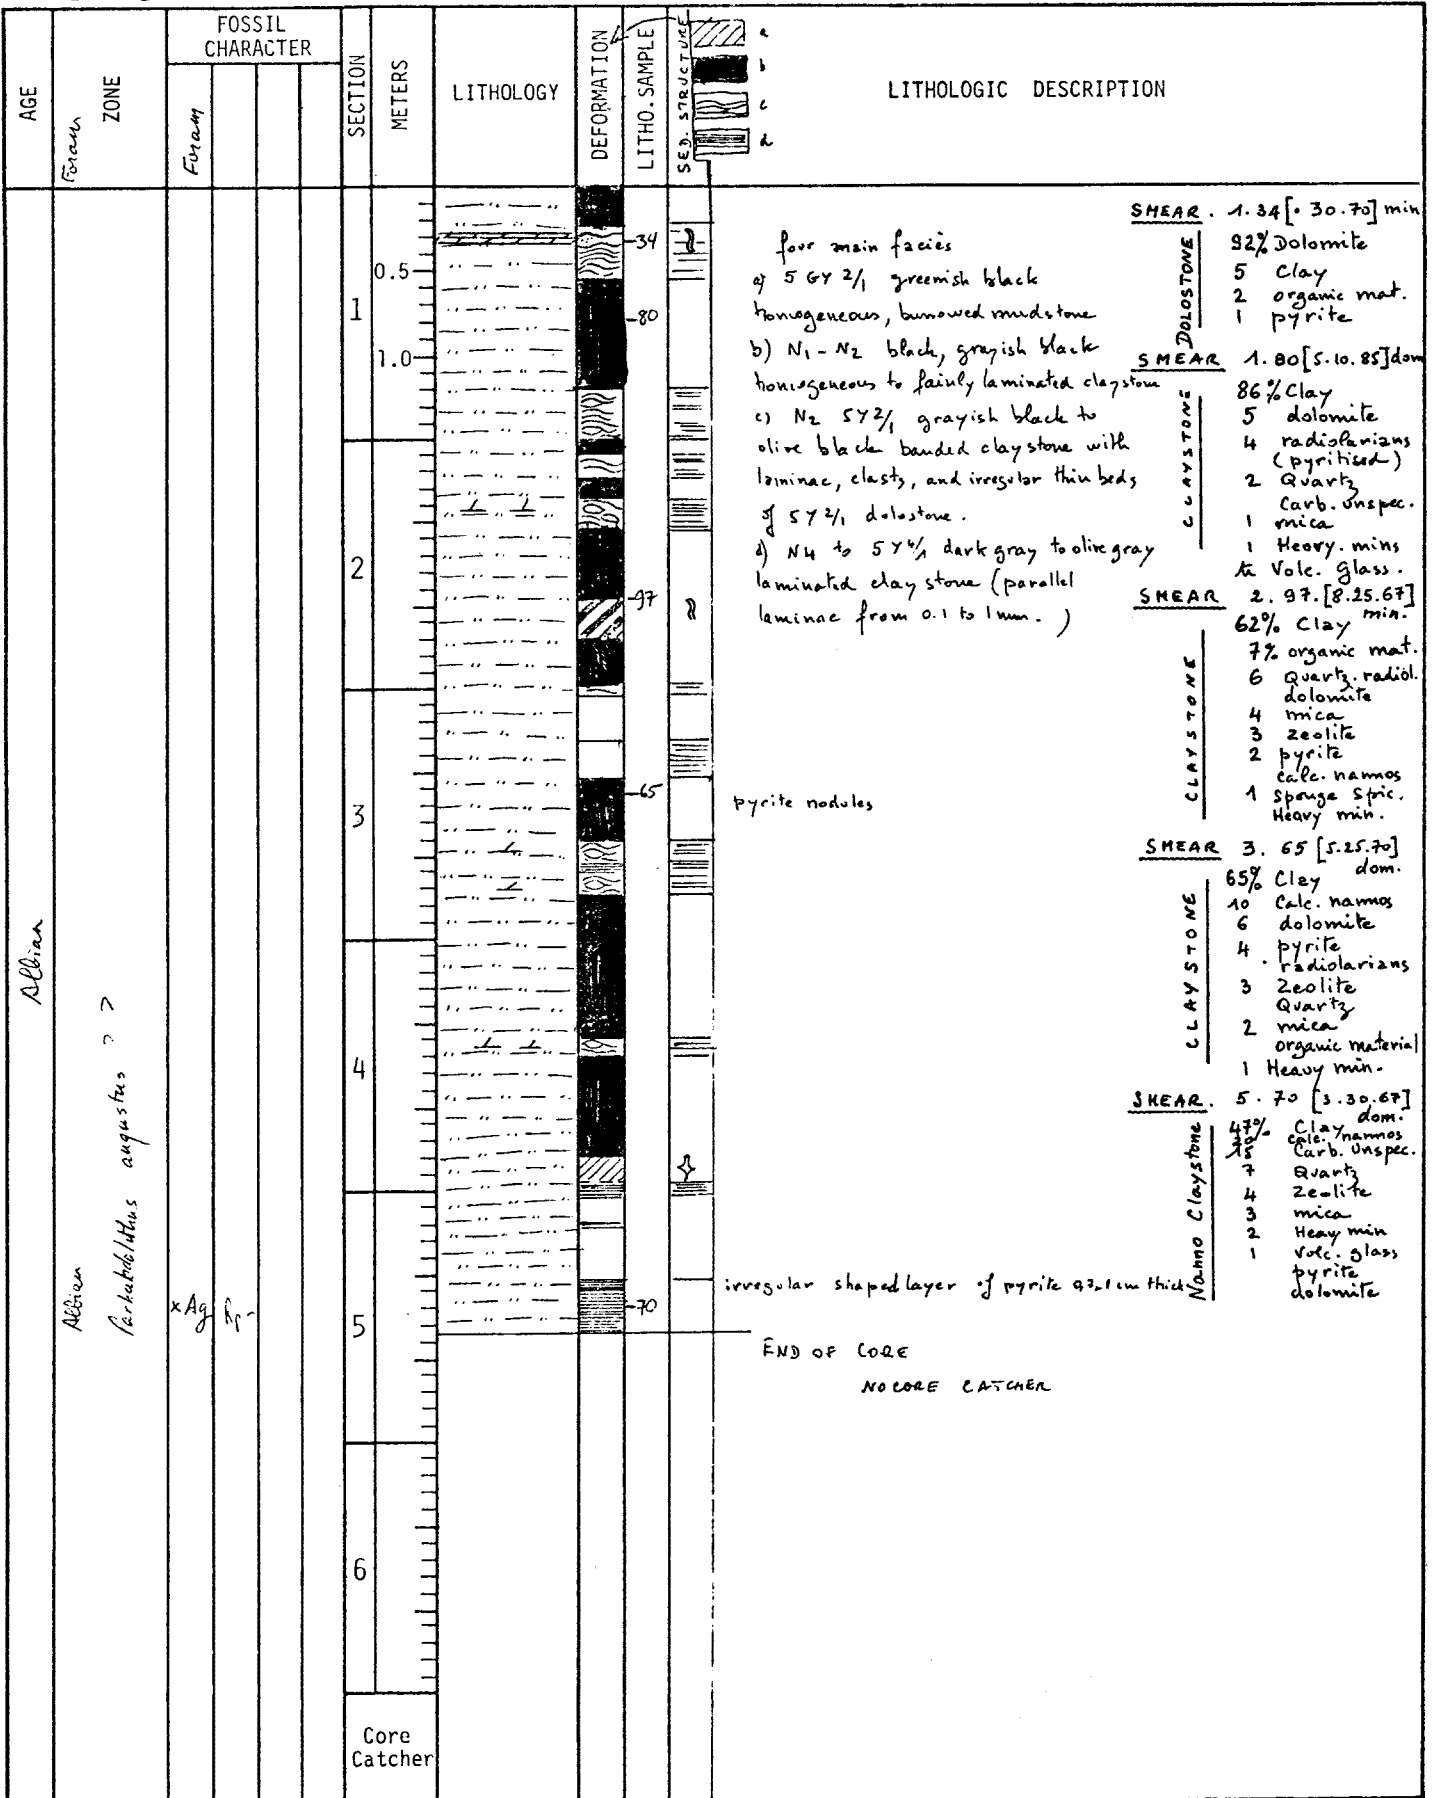 AGE
Foram
ZONE
FOSSIL
CHARACTER
Foram
SECTION
METERS
LITHOLOGY
DEFORMATION
LITHO. SAMPLE
SED. STRUCTURE
a
b
c
d
LITHOLOGIC DESCRIPTION
Albian
Albian
augustus ? ?
x Ag
1
0.5
1.0
2
3
4
5
6
Core
Catcher
34
80
97
65
70
four main facies
a) 5 GY 2/1 greenish black
homogeneous, burrowed mudstone
b) N1 - N2 black, grayish black
homogeneous to fainly laminated claystone
c) N2 5Y2/1 grayish black to
olive black banded claystone with
laminae, clasts, and irregular thin beds
of 5Y2/1 dolostone.
d) N4 to 5Y4/1 dark gray to olive gray
laminated claystone (parallel
laminae from 0.1 to 1mm. )
pyrite nodules
irregular shaped layer of pyrite cm thick
END OF CORE
NO CORE CATCHER
SMEAR. 1.34 [. 30.70] min
DOLOSTONE
92% Dolomite
5 Clay
2 organic mat.
1 pyrite
SMEAR 1.80 [5.10.85] dom
CLAYSTONE
86% Clay
5 dolomite
4 radiolarians
(pyritised)
2 Quartz
Carb. unspec.
1 mica
1 Heavy. mins
tr Volc. Glass.
SMEAR 2.97. [8.25.67]
min.
CLAYSTONE
62% Clay
7% organic mat.
6 Quartz. radiol.
dolomite
4 mica
3 Zeolite
2 pyrite
calc. nannos
1 Sponge Spic.
Heavy min.
SMEAR 3. 65 [5.25.70]
dom.
CLAYSTONE
65% Clay
10 Calc. nannos
6 dolomite
4 pyrite
radiolarians
3 Zeolite
Quartz
2 mica
organic material
1 Heavy min.
SMEAR. 5. 70 [3.30.67]
dom.
Nanno Claystone
47% Clay
20 calc. nannos
15 Carb. Unspec.
7 Quartz
4 Zeolite
3 mica
2 Heavy min
1 Volc. glass
pyrite
dolomite